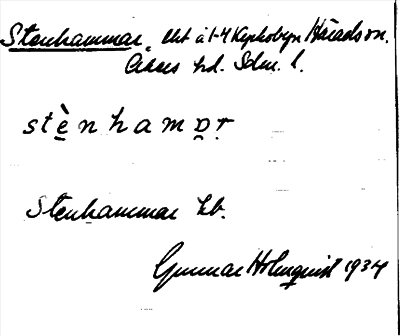 Stenhammar. lht å 1-4 Kyrkobyn Häradson.
Åkers hd. Sdm. l.
stènhamɒr
Stenhammar hb.
Gunnar Holmquist 1934